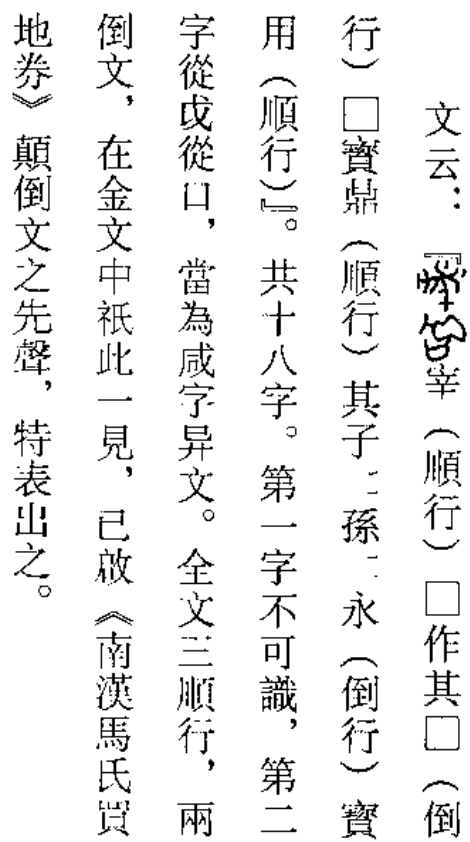 文云：『宰（順行）□作其□（倒
行）□寶鼎（順行）其子﹦孫﹦永（倒行）寶
用（順行）』。共十八字。第一字不可識，第二
字從戉從口，當為咸字异文。全文三順行，兩
倒文，在金文中衹此一見，已啟《南漢馬氏買
地券》顛倒文之先聲，特表出之。